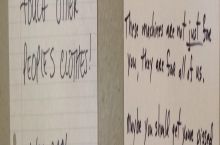 TOUCH OTHER
PEOPLES CLOTHES!
These machines are not just for
you, they are for all of us.
maybe you should get some